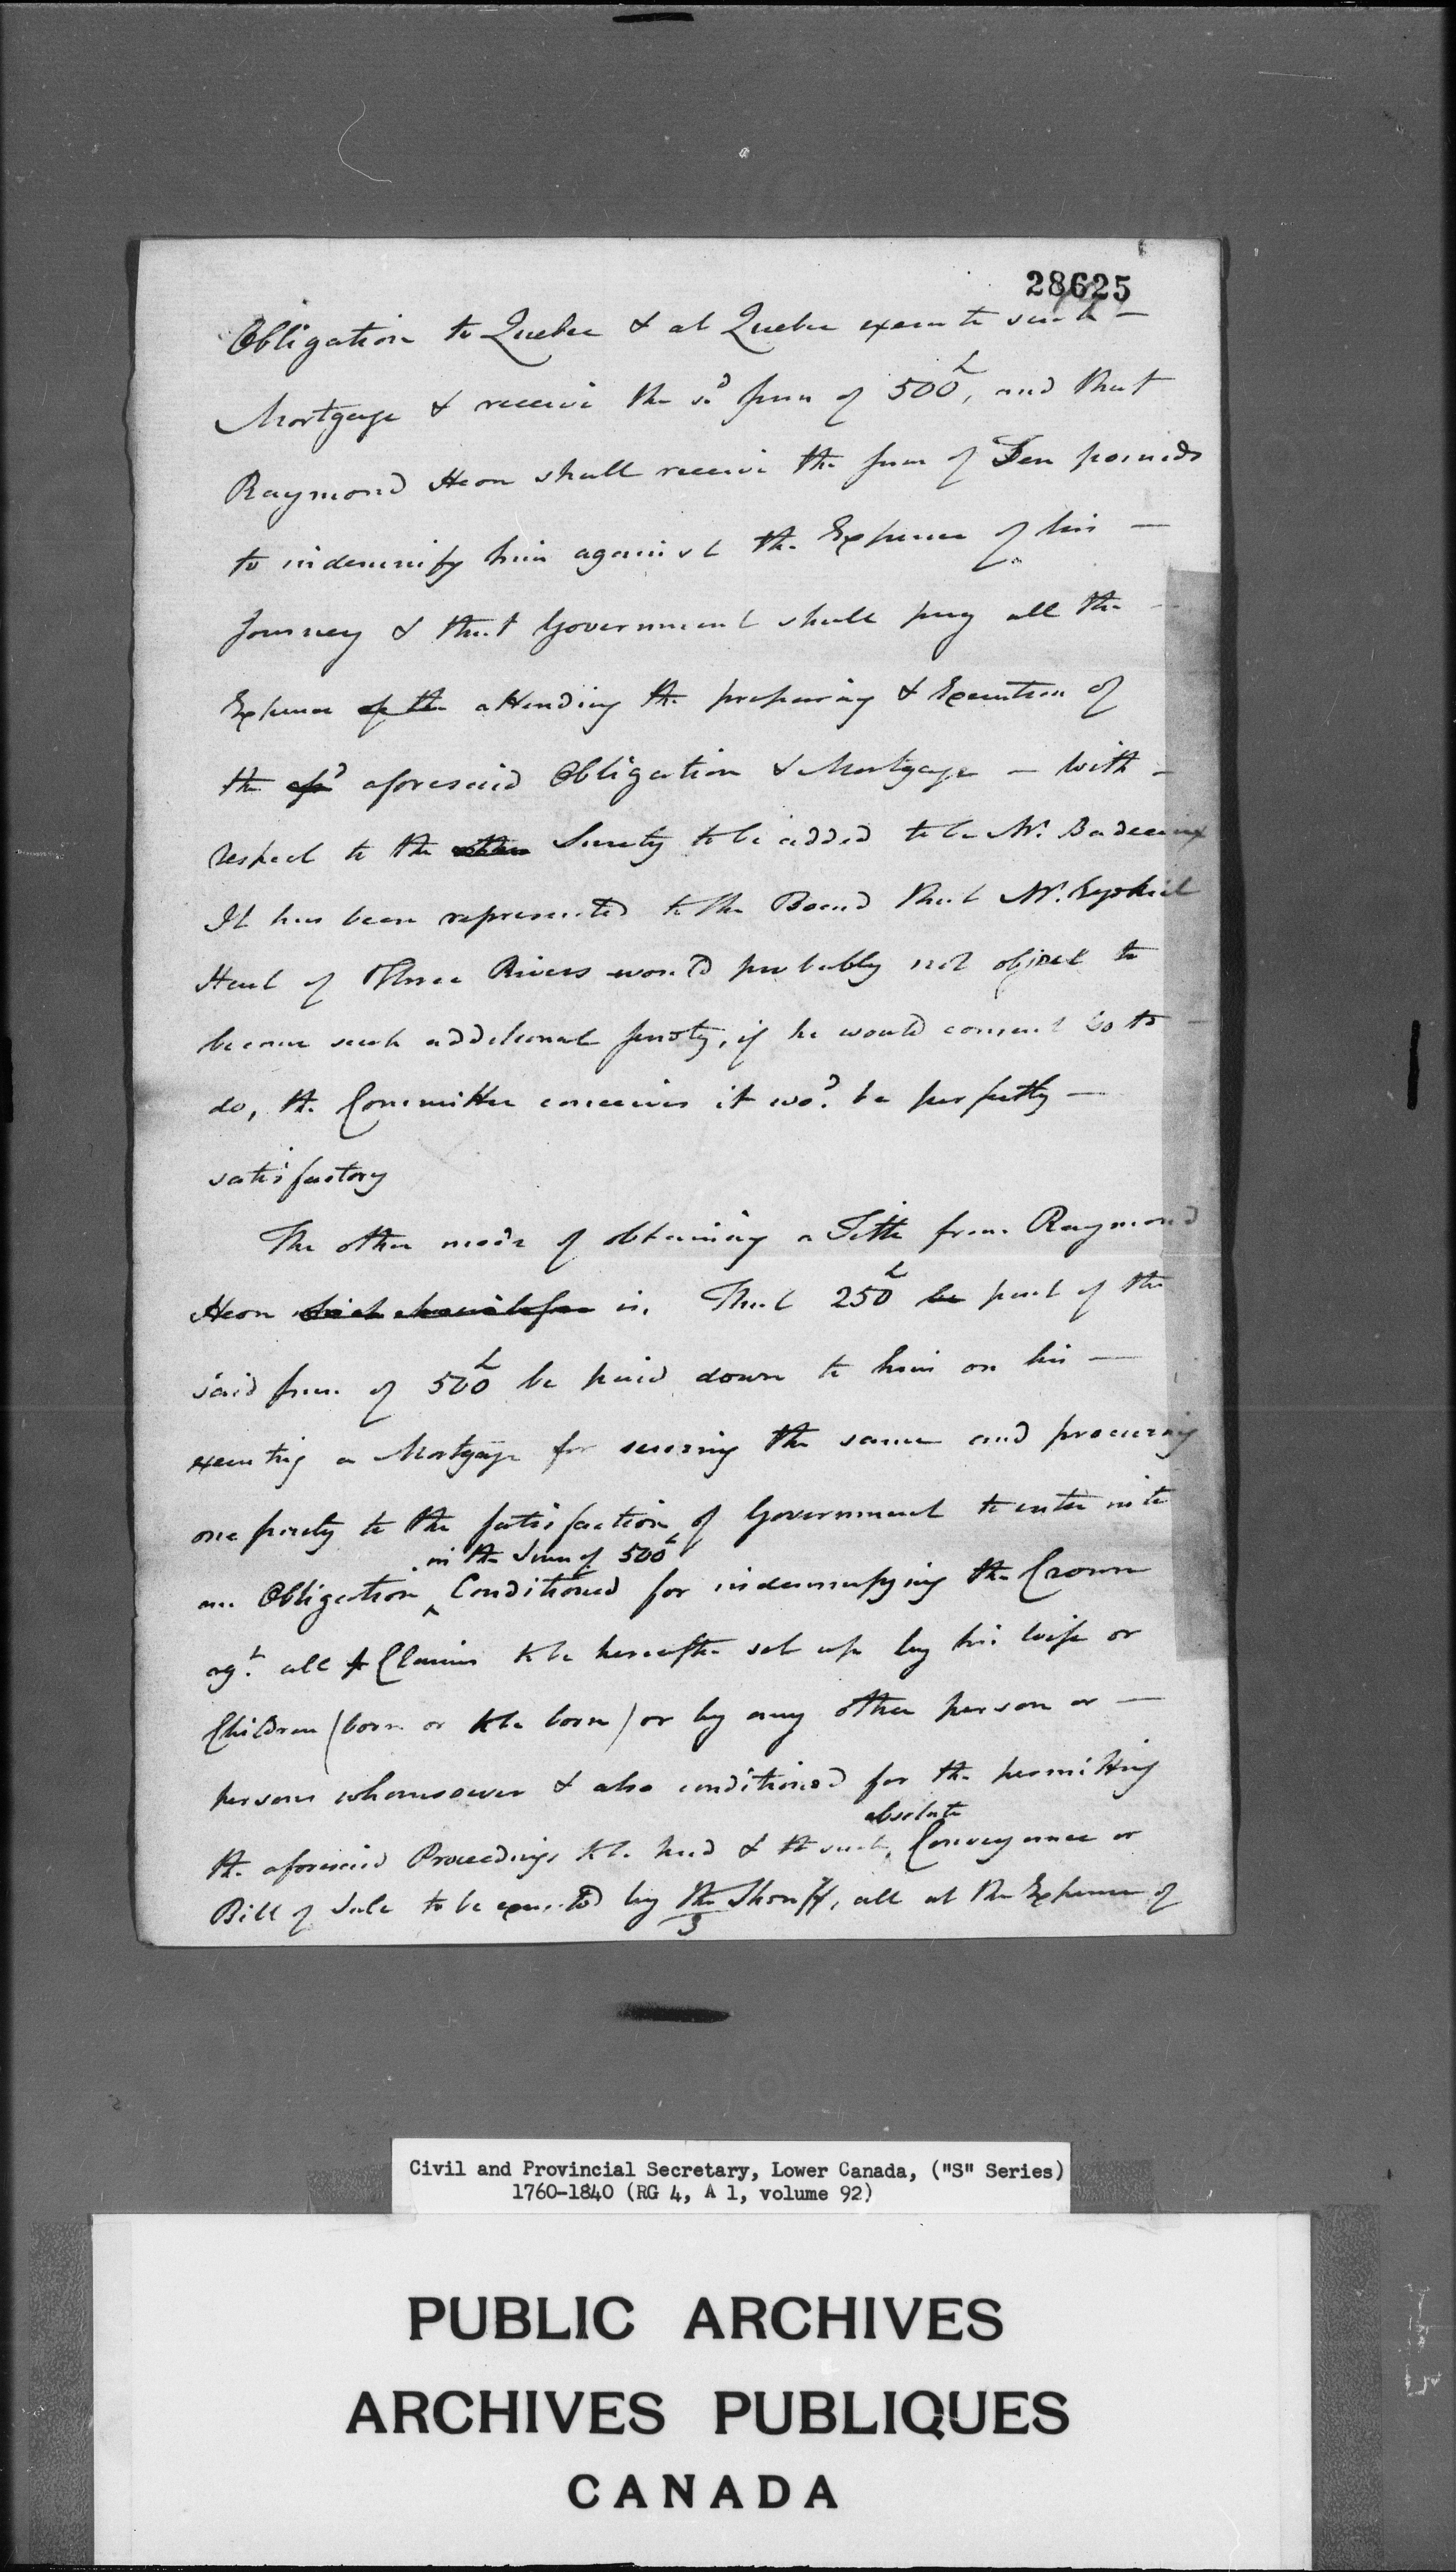 28625
Obligation to Quebec & at Quebec execute such —
Mortgage & receive the sd sum of 500£, and that
Raymond Heon shall receive the sum of Ten pounds
to indemnify him against the Expence of his —
Journey & that Government shall pay all the —
Expence of the attending the preparing & Execution of
the afsd aforesaid Obligation & Mortgage — with —
respect to the other Surety to be added to be Mr. Badeaux
It has been represented to the Board that Mr. Ezekiel
Hart of Three Rivers would probably not object to
become such additional surety, if he would consent so to —
do, the Committee conceives it wod. be perfectly —
satisfactory
The other mode of obtaining a Title from Raymond
Heon is, That 250£ be part of the
said sum of 500£ be paid down to him on his —
executing a Mortgage for securing the same and procuring
one surety to the satisfaction of Government to enter into
in the Sum of 500£
an Obligation ^ Conditioned for indemnifying the Crown
agt. all Claims to be hereafter set up by his wife or
Children (born or to be born) or by any other person or —
persons whomsoever & also conditioned for the permitting
absolute
the aforesaid Proceedings to be had & the such ^ Conveyance or
Bill of Sale to be executed by the Sheriff, all at the Expence of
3
Civil and Provincial Secretary, Lower Canada, ("S" Series)
1760-1840 (RG 4, A 1, volume 92)
PUBLIC ARCHIVES
ARCHIVES PUBLIQUES
CANADA